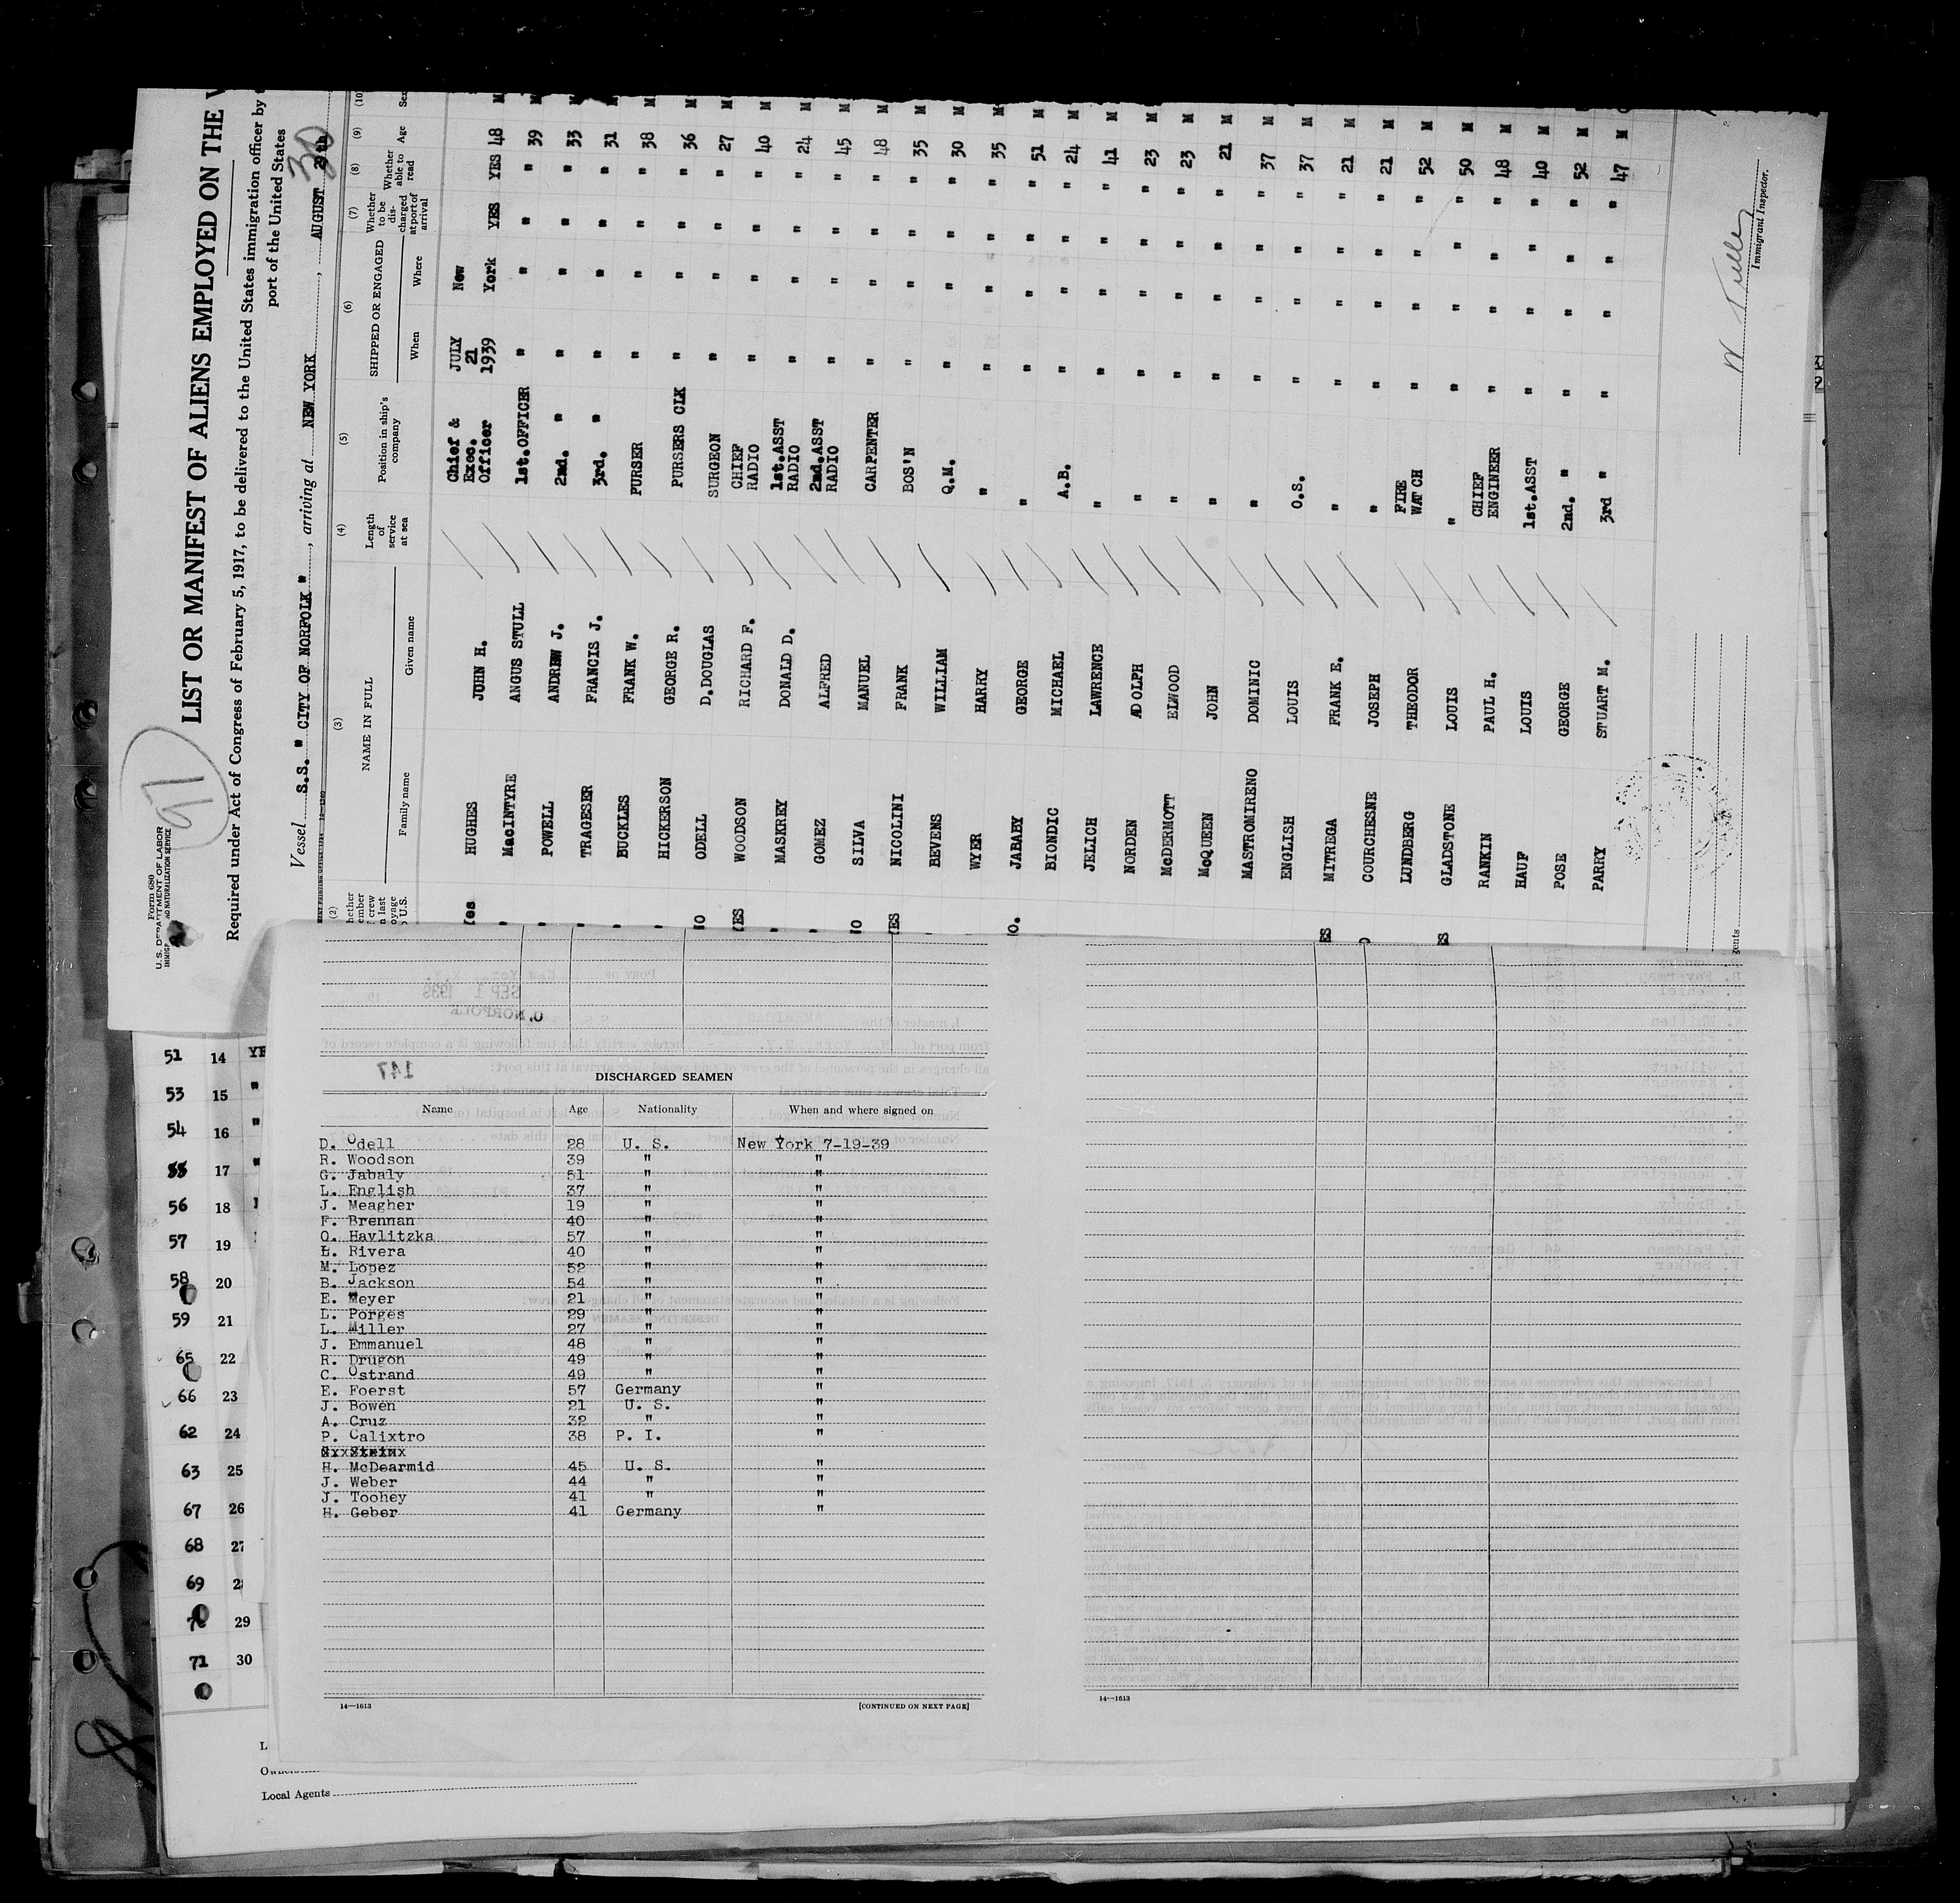 Form 680
U. S. DEPARTMENT OF LABOR
97
LIST OR MANIFEST OF ALIENS EMPLOYED ON THE
Required under Act of Congress of February 5, 1917, to be delivered to the United States immigration officer by
port of the United States
Vessel S.S. " CITY OF NORFOLK ", arriving at NEW YORK, AUGUST 29th
30
(2) (3) (4) (5) (6) (7) (8) (9) (10)
NAME IN FULL Length of service at sea Position in ship's company SHIPPED OR ENGAGED Whether to be discharged at port of arrival Whether able to read Age Sex
Family name Given name When Where
HUGHES JOHN H. Chief & Exec. Officer JULY 21 1939 New York YES YES 48 M
MacINTYRE ANGUS STULL 1st.OFFICER " " " " 39 M
POWELL ANDREW J. 2nd. " " " " " 33 M
TRAGESER FRANCIS J. 3rd. " " " " " 31 M
BUCKLES FRANK W. PURSER " " " " 38 M
HICKERSON GEORGE R. PURSERS CLK " " " " 36 M
ODELL D.DOUGLAS SURGEON " " " " 27 M
WOODSON RICHARD F. CHIEF RADIO " " " " 40 M
MASKREY DONALD D. 1st.ASST RADIO " " " " 24 M
GOMEZ ALFRED 2nd.ASST RADIO " " " " 45 M
SILVA MANUEL CARPENTER " " " " 48 M
NICOLINI FRANK BOS'N " " " " 35 M
BEVENS WILLIAM Q.M. " " " " 30 M
WYER HARRY " " " " " 35 M
JABABY GEORGE " " " " " 51 M
BIONDIC MICHAEL A.B. " " " " 24 M
JELICH LAWRENCE " " " " " 41 M
NORDEN ADOLPH " " " " " 23 M
McDERMOTT ELWOOD " " " " " 23 M
McQUEEN JOHN " " " " " 21 M
MASTROMIRENO DOMINIC " " " " " 37 M
ENGLISH LOUIS O.S. " " " " 37 M
MITREGA FRANK E. " " " " " 21 M
COURCHESNE JOSEPH " " " " " 21 M
LUNDBERG THEODOR FIRE WATCH " " " " 52 M
GLADSTONE LOUIS " " " " " 50 M
RANKIN PAUL H. CHIEF ENGINEER " " " " 48 M
HAUF LOUIS 1st.ASST " " " " 40 M
POSE GEORGE 2nd. " " " " " 52 M
PARRY STUART M. 3rd " " " " " 47 M
Immigrant Inspector.
51 14
53 15 "
54 16 "
55 17 "
56 18
57 19
58 20
59 21
65 22
66 23
62 24
63 25
67 26
68 27
69
29
71 30
DISCHARGED SEAMEN
Name Age Nationality When and where signed on
D. Odell 28 U. S. New York 7-19-39
R. Woodson 39 " "
G. Jabaly 51 " "
L. English 37 " "
J. Meagher 19 " "
F. Brennan 40 " "
O. Havlitzka 57 " "
L. Rivera 40 " "
M. Lopez 52 " "
B. Jackson 54 " "
E. Meyer 21 " "
L. Porges 29 " "
L. Miller 27 " "
J. Emmanuel 48 " "
R. Drugon 49 " "
C. Ostrand 49 " "
E. Foerst 57 Germany "
J. Bowen 21 U. S. "
A. Cruz 32 " "
P. Calixtro 38 P. I. "
H. McDearmid 45 U. S. "
J. Weber 44 " "
J. Toohey 41 " "
H. Geber 41 Germany "
14—1613 [CONTINUED ON NEXT PAGE]
14—1613
Local Agents